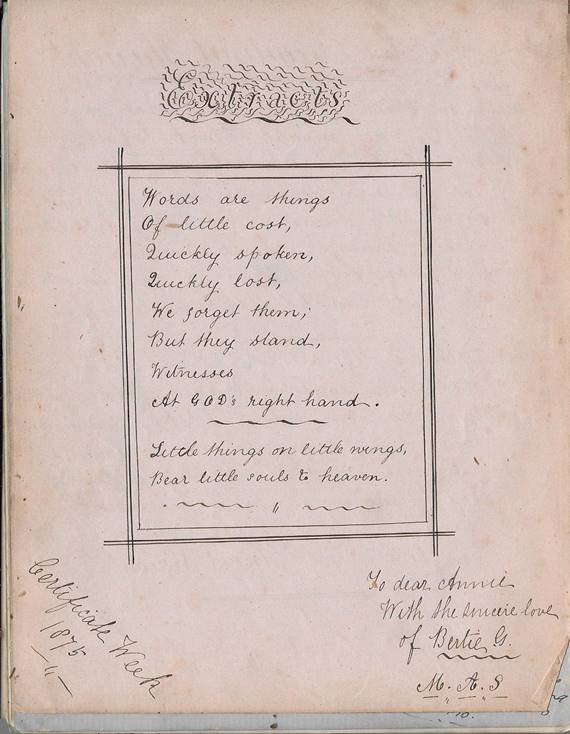 Extracts
Words are things
Of little cost,
Quickly spoken,
Quickly lost,
We forget them;
But they stand,
Witnesses
At GOD's right hand.
Little things on little wings,
Bear little souls to heaven.
"
Certificate Week
1875
"
To dear Annie
With the sincere love
of Bertie G.
M. A. S